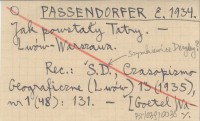 PASSENDORFER E. 1934.
Jak powstały Tatry. -
Lwów-Warszawa.
Rec.: S.D., Czasopismo
Geograficzne (Lwów) 13 (1935),
nr 1 (48): 131. - [Goetel] W.